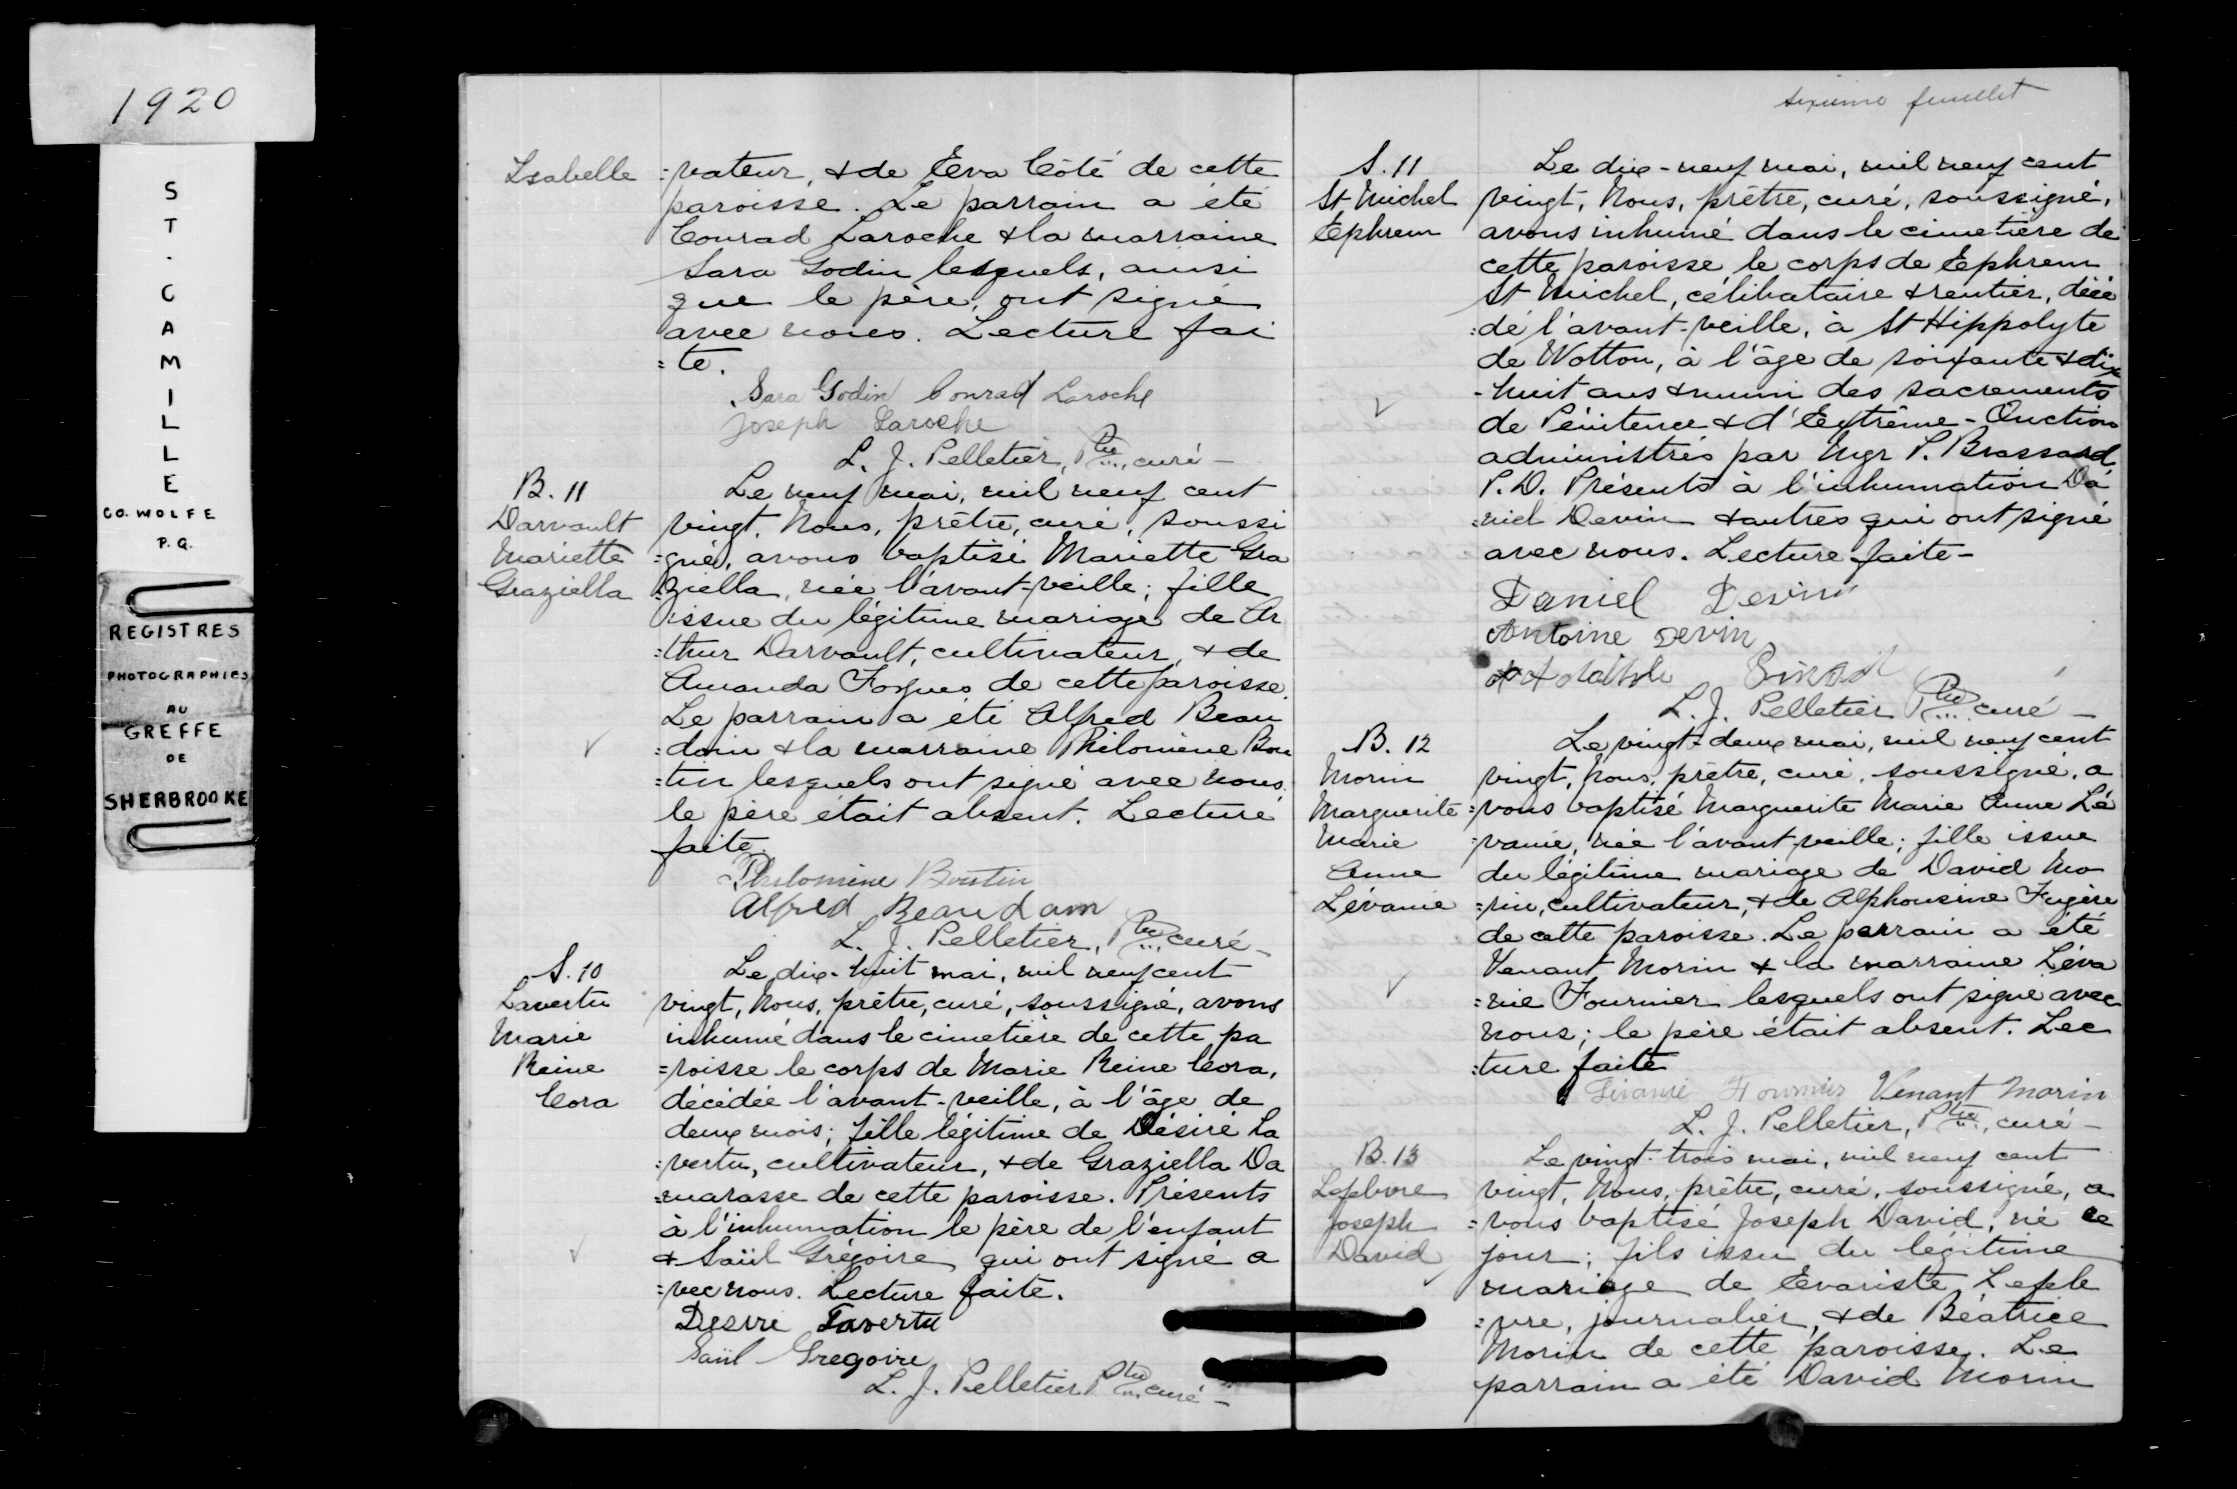 1920
ST. CAMILLE
CO. WOLFE
P.Q.
REGISTRES
PHOTOGRAPHIES
AU
GREFFE
DE
SHERBROOKE
Isabelle
=vateur, & de Eva Côté de cette
paroisse. Le parrain a été
Conrad Laroche & la marraine
Sara Godin lesquels, ainsi
que le père, ont signé
avec nous. Lecture fai
=te.
Sara Godin Conrad Laroche
Joseph Laroche
L. J. Pelletier, Ptre, curé -
B. 11
Darvault
Mariette
Graziella
Le neuf mai, mil neuf cent
vingt, Nous, prêtre, curé, soussi
=gné, avons baptisé Mariette Gra
=ziella, née l'avant-veille; fille
issue du légitime mariage de Ar
=thur Darvault, cultivateur, & de
Amanda Forgues de cette paroisse.
Le parrain a été Alfred Beau
=doin & la marraine Philomène Bou
=tin lesquels ont signé avec nous.
le père était absent. Lecture
faite.
Philomène Boutin
Alfred Beaudoin
L. J. Pelletier, Ptre curé -
S. 10
Lavertu
Marie
Reine
Cora
Le dix-huit mai, mil neuf cent
vingt, Nous, prêtre, curé, soussigné, avons
inhumé dans le cimetière de cette pa
=roisse le corps de Marie Reine Cora,
décédée l'avant-veille, à l'âge de
deux mois; fille légitime de Désiré La
=vertu, cultivateur, & de Graziella Da
=marasse de cette paroisse. Présents
à l'inhumation le père de l'enfant
& Saül Grégoire qui ont signé a
=vec nous. Lecture faite.
Desire Lavertu
Saül Gregoire
L. J. Pelletier Ptre curé -
sixième feuillet
S. 11
St Michel
Ephrem
Le dix-neuf mai, mil neuf cent
vingt, Nous, prêtre, curé, soussigné,
avons inhumé dans le cimetière de
cette paroisse le corps de Ephrem
St Michel, célibataire & rentier, décé
=dé l'avant-veille, à St Hippolyte
de Wotton, à l'âge de soixante & dix
-huit ans & muni des sacrements
de Pénitence & d'Extrême-Onction
administrés par Mgr P. Brassard
P. D. Présents à l'inhumation Da
=niel Devin & autres qui ont signé
avec nous. Lecture faite -
Daniel Devin
Antoine Devin
L. J. Pelletier Ptre curé -
B. 12
Morin
Marguerite
Marie
Anne
Lévanie
Le vingt-deux mai, mil neuf cent
vingt, Nous, prêtre, curé, soussigné, a
=vons baptisé Marguerite Marie Anne Lé
=vanie, née l'avant-veille; fille issue
du légitime mariage de David Mo
=rin, cultivateur, & de Alphonsine Fugère
de cette paroisse. Le parrain a été
Venant Morin & la marraine Léva
=nie Fournier lesquels ont signé avec
nous; le père était absent. Lec
=ture faite
Livanie Fournier Venant Morin
L. J. Pelletier, Ptre, curé -
B. 13
Lefebvre
Joseph
David
Le vingt-trois mai, mil neuf cent
vingt, Nous, prêtre, curé, soussigné, a
=vons baptisé Joseph David, né ce
jour; fils issu du légitime
mariage de Evariste Lefeb
=vre, journalier, & de Béatrice
Morin de cette paroisse. Le
parrain a été David Morin